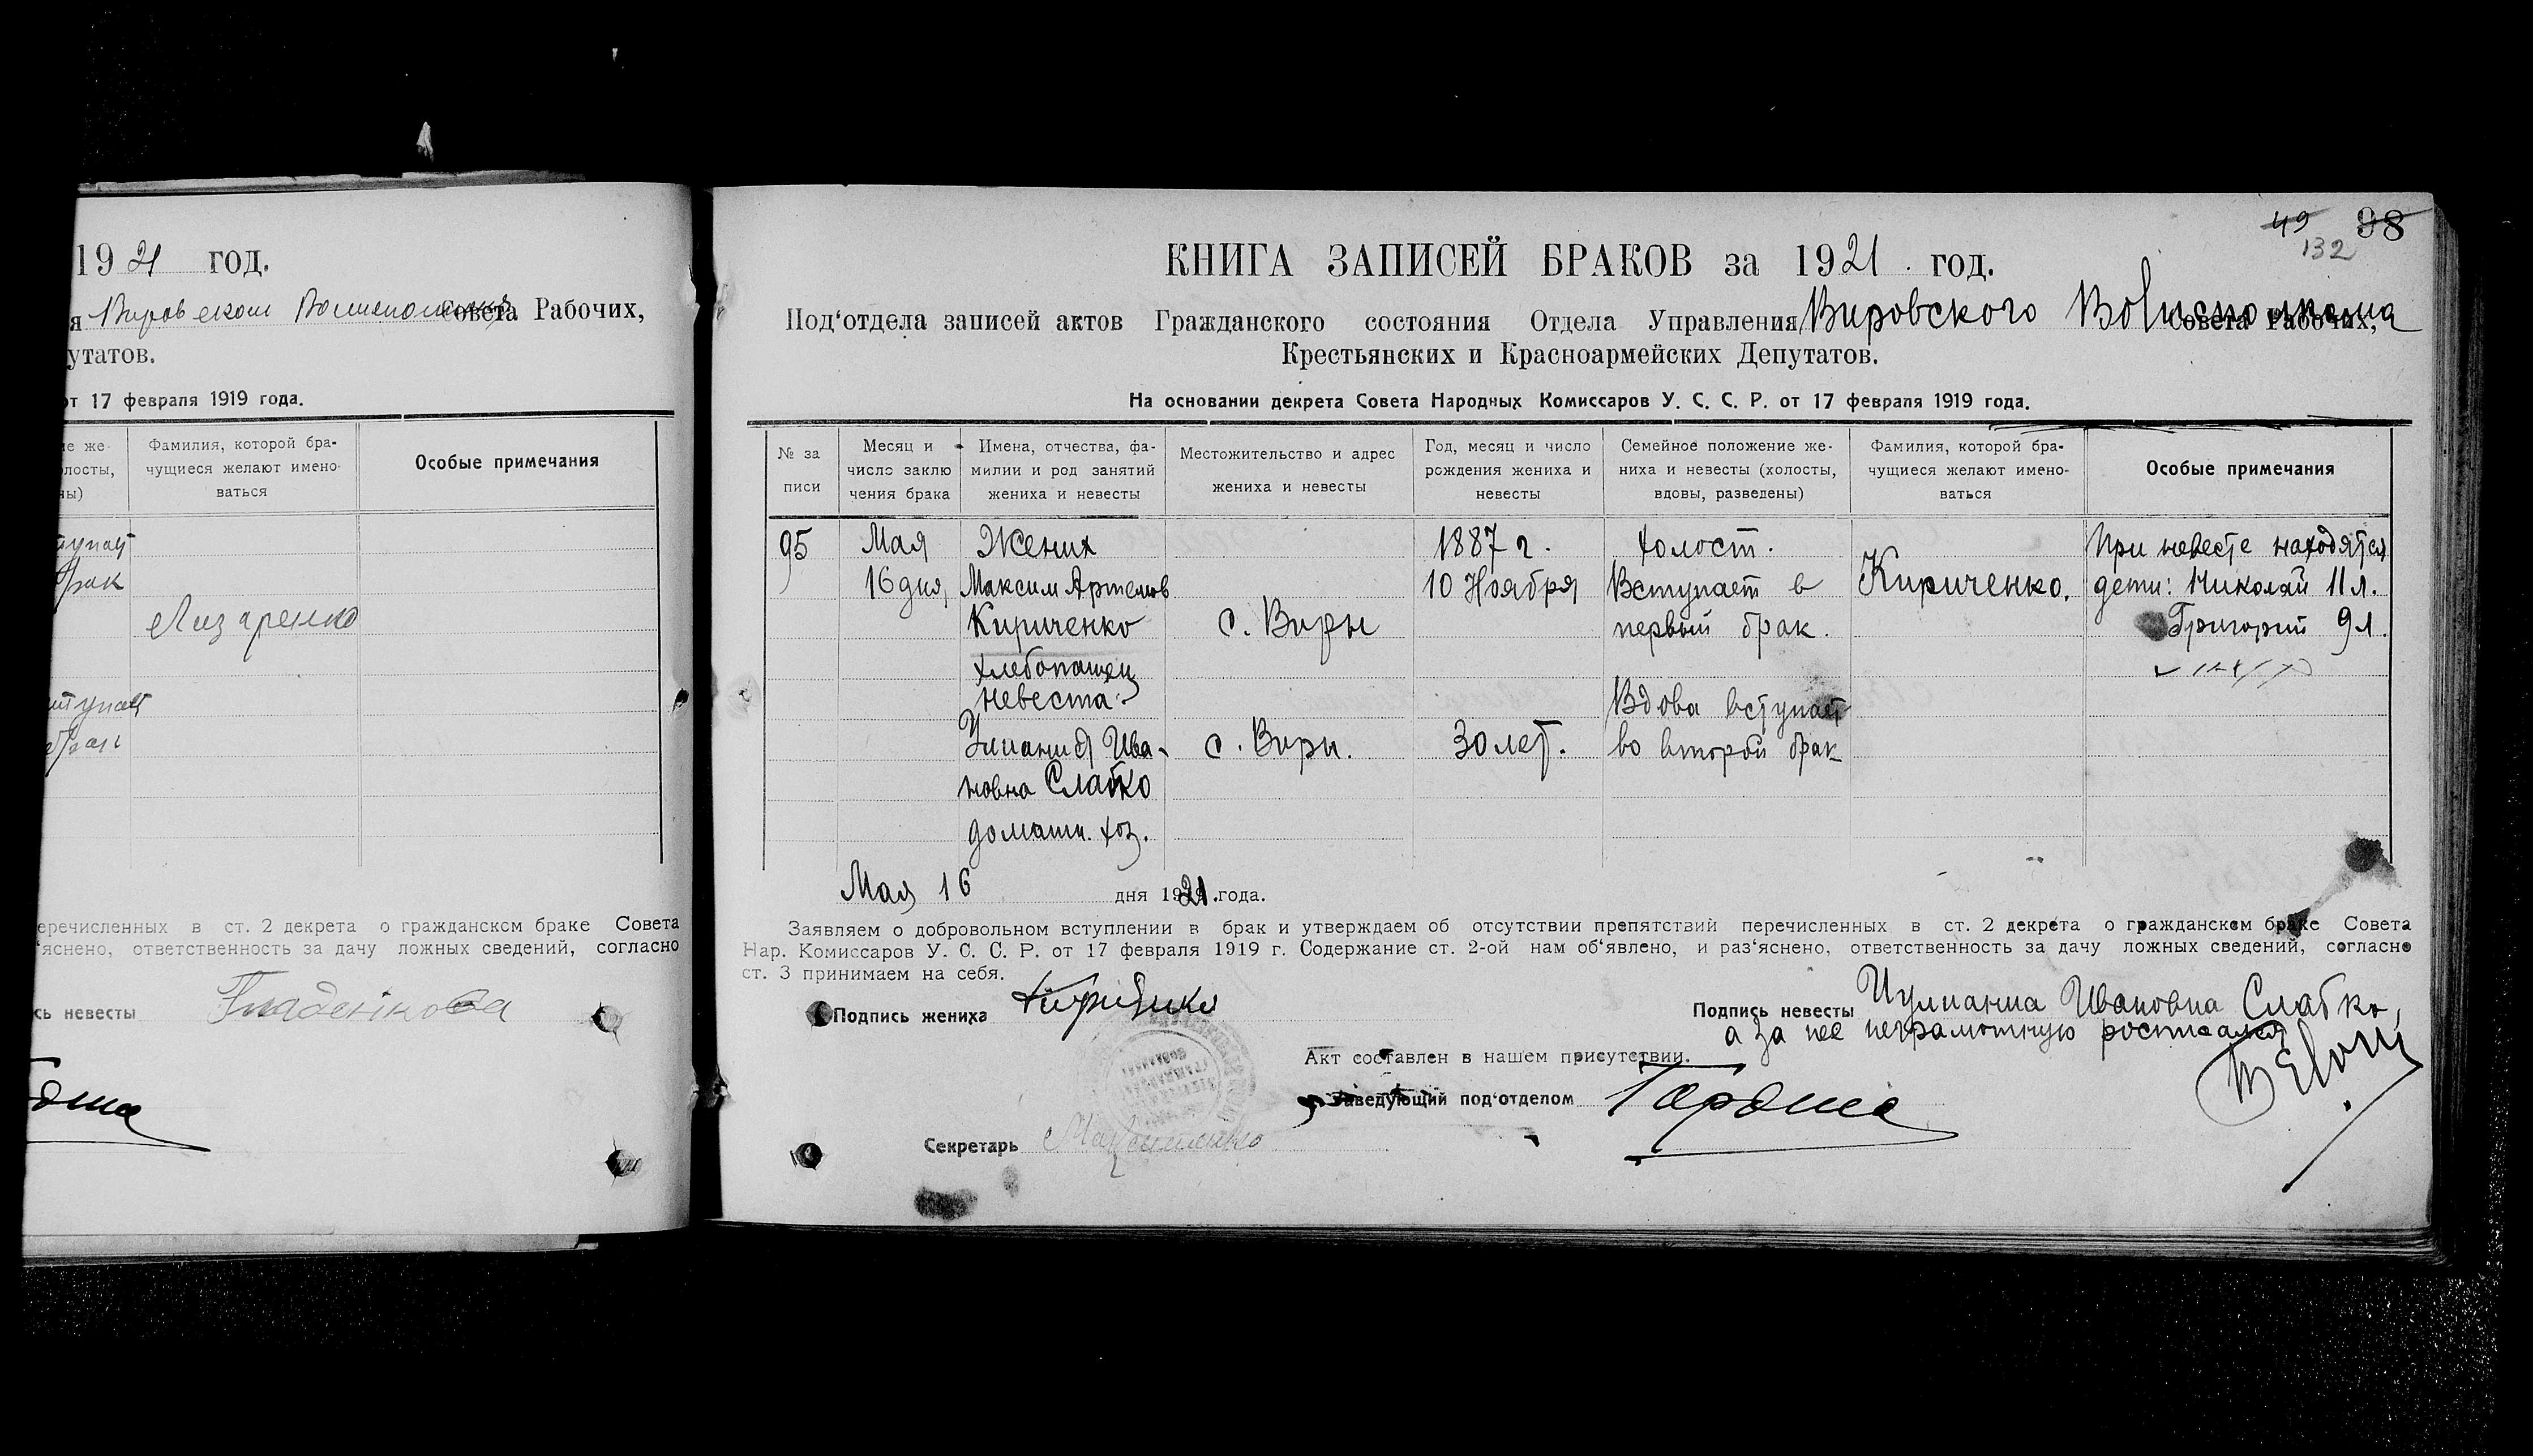 1921 год.
я Совета Рабочих,
утатов.
от 17 февраля 1919 года.
ие же-
олосты,
ны)
Фамилия, которой бра-
чущиеся желают имено-
ваться
Особые примечания
брак
Лизаренко
еречисленных в ст. 2 декрета о гражданском браке Совета
'яснено, ответственность за дачу ложных сведений, согласно
сь невесты
49 98
132
КНИГА ЗАПИСЕЙ БРАКОВ за 1921 год.
Под'отдела записей актов Гражданского состояния Отдела Управления Вировского Волисполкома Совета Рабочих,
Крестьянских и Красноармейских Депутатов.
На основании декрета Совета Народных Комиссаров У. С. С. Р. от 17 февраля 1919 года.
№ за
писи
Месяц и
число заклю
чения брака
Имена, отчества, фа-
милии и род занятий
жениха и невесты
Местожительство и адрес
жениха и невесты
Год, месяц и число
рождения жениха и
невесты
Семейное положение же-
ниха и невесты (холосты,
вдовы, разведены)
Фамилия, которой бра-
чущиеся желают имено-
ваться
Особые примечания
95
Мая
16 дня,
Жених
Максим Артемов
Кириченко
хлебопашец
невеста:
Улиания Ива-
новна Слабко
домашн. хоз.
с. Виры
с. Виры.
1887 г.
10 Ноября
30 лет.
холост.
Вступает в
первый брак.
Вдова вступает
во второй брак
Кириченко.
При невесте находятся
дети: Николай 11 л.
Григорий 9 л.
Мая 16 дня 1921 года.
Заявляем о добровольном вступлении в брак и утверждаем об отсутствии препятствий перечисленных в ст. 2 декрета о гражданском браке Совета
Нар. Комиссаров У. С. С. Р. от 17 февраля 1919 г. Содержание ст. 2-ой нам об'явлено, и раз'яснено, ответственность за дачу ложных сведений, согласно
ст. 3 принимаем на себя.
Подпись жениха
Подпись невесты Иулиания Ивановна Слабко,
а за нее неграмотную
Акт составлен в нашем присутствии.
Заведующий под'отделом
Секретарь